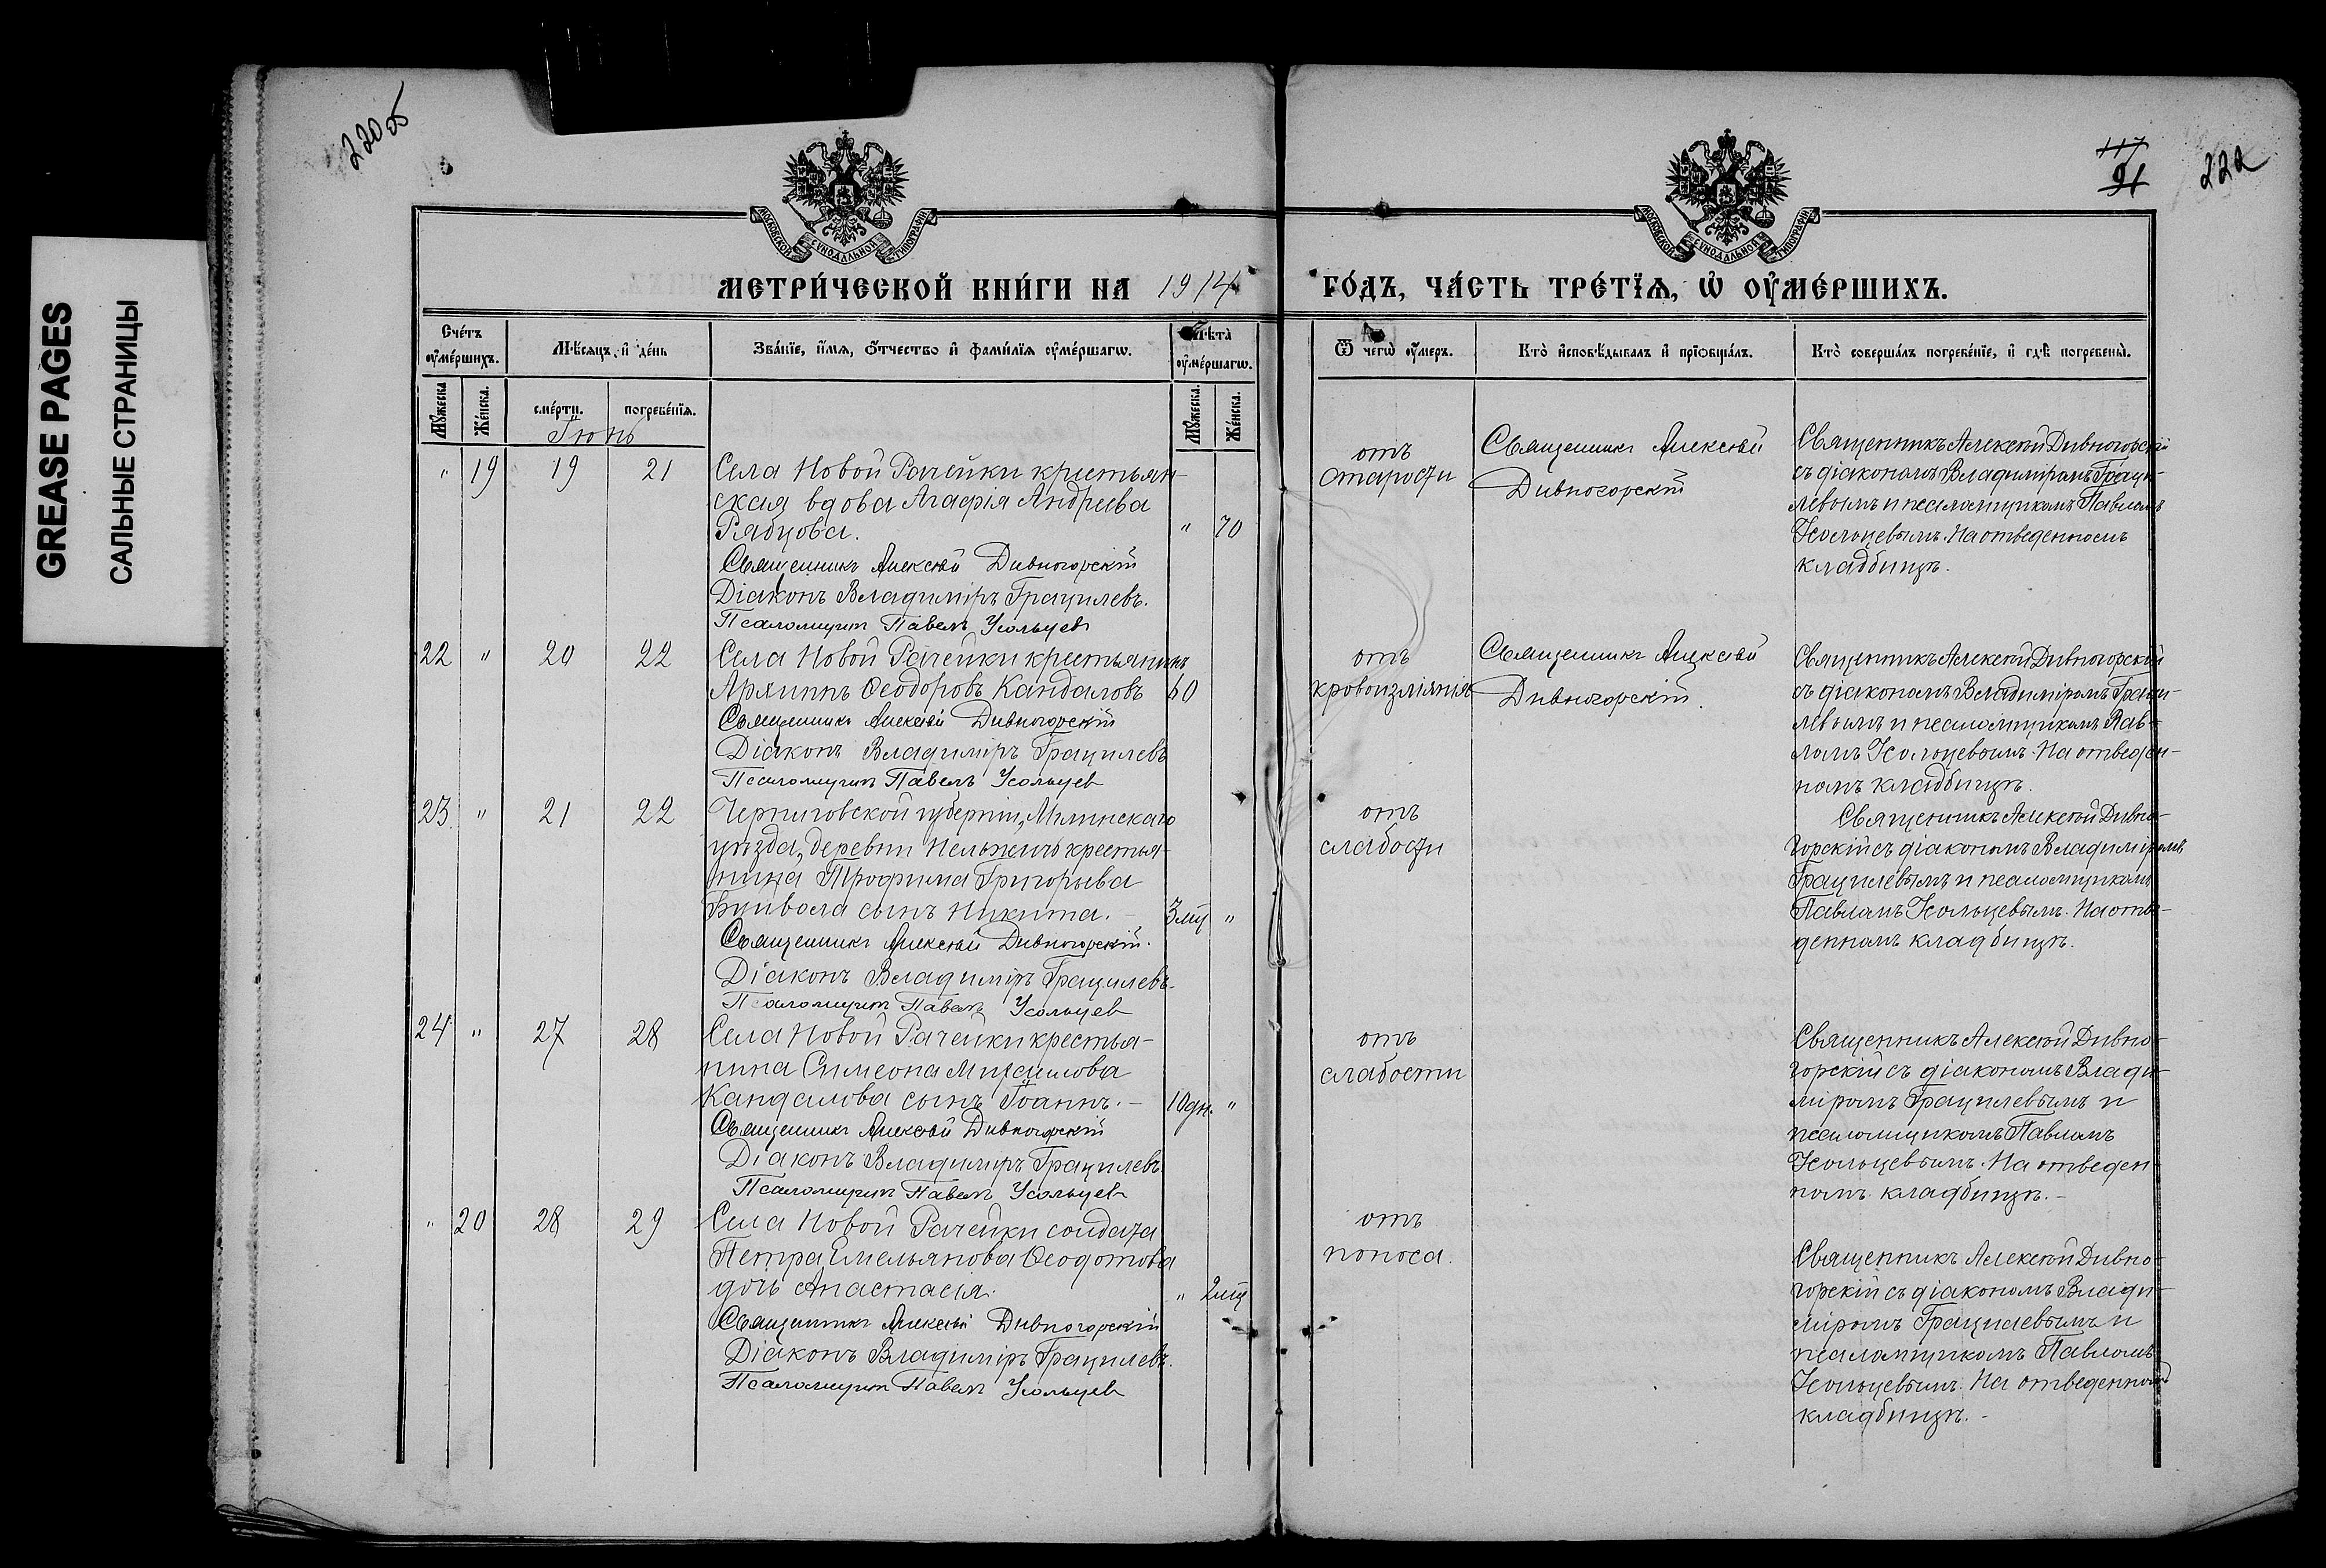 GREASE PAGES
САЛЬНЫЕ СТРАНИЦЫ
220об
117
91
222
МОСКОВСКОЙ СѴНОДАЛЬНОЙ ТИПОГРАФІИ
МОСКОВСКОЙ СѴНОДАЛЬНОЙ ТИПОГРАФІИ
МЕТРИ́ЧЕСКОЙ КНИ́ГИ НА 1914
ГО́ДЪ, ЧА́СТЬ ТРЕ́ТЇѦ, Ѡ҆ ОУ҆МЕ́РШИХЪ.
Сче́тъ оу҆ме́ршихъ.
Мѣ́сѧцъ и҆ де́нь
Зва́нїе, и҆́мѧ, ѻ҆́тчество и҆ фами́лїѧ оу҆ме́ршагѡ.
Лѣ̑та оу҆ме́ршагѡ.
Ѿ чегѡ̀ оу҆́меръ.
Кто̀ и҆сповѣ́дывалъ и҆ прїѡбща́лъ.
Кто̀ соверша́лъ погребе́нїе, и҆ гдѣ̀ погребены̀.
Мꙋ́жеска
Же́нска.
сме́рти.
погребе́нїѧ.
Мꙋ́жеска.
Же́нска.
Іюнь
" 19 19 21 Села Новой Рачейки крестьян-
ская вдова Агафія Андреева
Рябцова. " 70
Священникъ Алексѣй Дивногорскій
Діаконъ Владиміръ Грацилевъ.
Псаломщикъ Павелъ Усольцев
отъ
старости
Священникъ Алексѣй
Дивногорскій
Священникъ Алексѣй Дивногорскій
съ діакономъ Владиміромъ Граци-
левымъ и псаломщикомъ Павломъ
Усольцевымъ. На отведенномъ
кладбищѣ.
22 " 20 22 Села Новой Рачейки крестьянинъ
Архиппъ Ѳеодоровъ Кандаловъ 60
Священникъ Алексѣй Дивногорскій
Діаконъ Владиміръ Грацилевъ
Псаломщикъ Павелъ Усольцев
отъ
кровоизліянія
Священникъ Алексѣй
Дивногорскій.
Священникъ Алексѣй Дивногорскій
съ діакономъ Владиміромъ Граци-
левымъ и псаломщикомъ Пав-
ломъ Усольцевымъ. На отведен-
номъ кладбищѣ.
23 " 21 22 Черниговской губерніи, Мглинскаго
уѣзда, деревни крестья-
нина Трофима Григорьева
сынъ Никита. - 3 мц "
Священникъ Алексѣй Дивногорскій.
Діаконъ Владиміръ Грацилевъ.
Псаломщикъ Павелъ Усольцев
отъ
слабости
Священникъ Алексѣй Дивно-
горскій съ діакономъ Владиміромъ
Грацилевымъ и псаломщикомъ
Павломъ Усольцевымъ. На отве-
денномъ кладбищѣ.
24 " 27 28 Села Новой Рачейки крестья-
нина Симеона Михаилова
Кандалова сынъ Іоаннъ. - 10 дн. "
Священникъ Алексѣй Дивногорскій
Діаконъ Владиміръ Грацилевъ.
Псаломщикъ Павелъ Усольцев
отъ
слабости
Священникъ Алексѣй Дивно-
горскій съ діакономъ Влади-
міромъ Грацилевымъ и
псаломщикомъ Павломъ
Усольцевымъ. На отведен-
номъ кладбищѣ. -
" 20 28 29 Села Новой Рачейки солдата
Петра Емельянова Ѳеодотова
дочь Анастасія. " 2 мц
Священникъ Алексѣй Дивногорскій
Діаконъ Владиміръ Грацилевъ.
Псаломщикъ Павелъ Усольцев
отъ
поноса.
Священникъ Алексѣй Дивно-
горскій съ діакономъ Влади-
міромъ Грацилевымъ и
псаломщикомъ Павломъ
Усольцевымъ. На отведенномъ
кладбищѣ. -